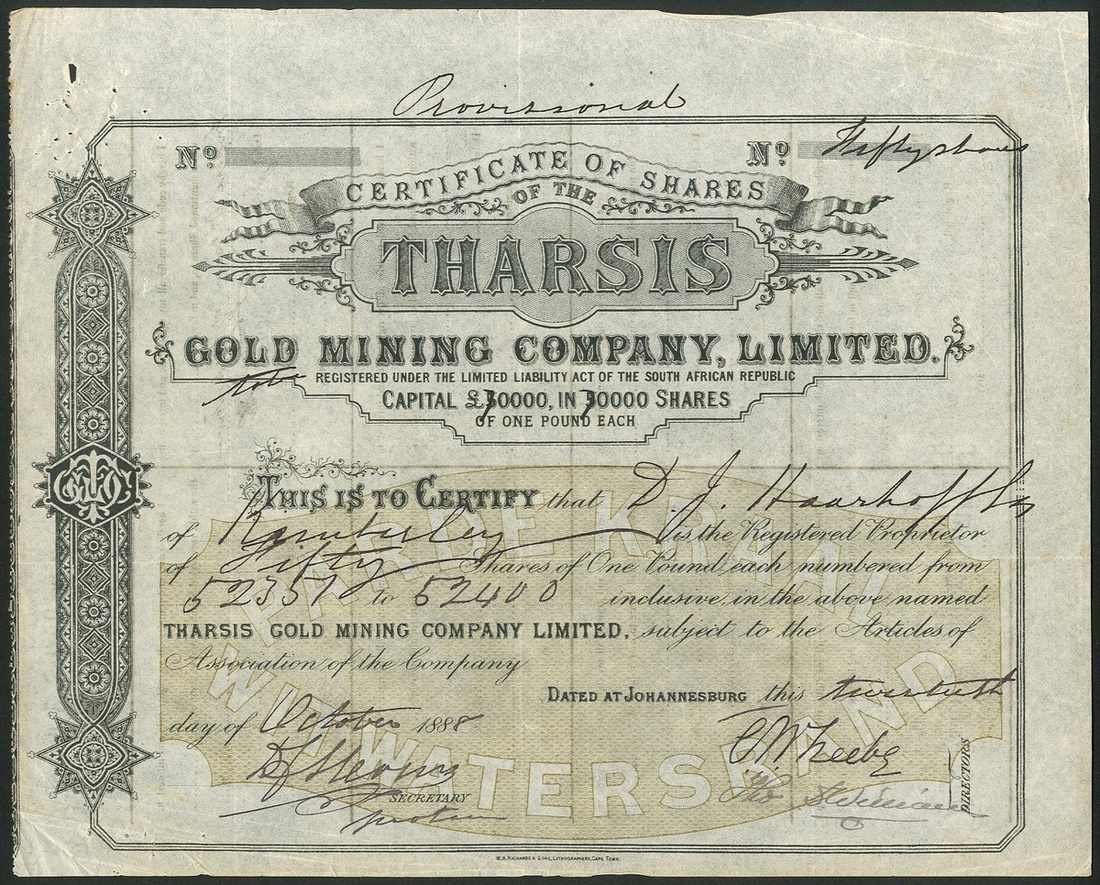 Provisional
No No Fifty shares
CERTIFICATE OF SHARES
OF THE
THARSIS
GOLD MINING COMPANY, LIMITED.
to be REGISTERED UNDER THE LIMITED LIABILITY ACT OF THE SOUTH AFRICAN REPUBLIC
CAPITAL £70000, IN 70000 SHARES
OF ONE POUND EACH
THIS IS TO CERTIFY that D. J. Haarhoff Esq
of Kimberley is the Registered Proprietor
of Fifty Shares of One Pound each numbered from
52351 to 52400 inclusive, in the above named
THARSIS GOLD MINING COMPANY LIMITED, subject to the Articles of
Association of the Company
DATED AT JOHANNESBURG this twentieth
day of October 1888
SECRETARY
DIRECTORS
KRAAL
WITWATERSRAND
W.A. RICHARDS & SONS, LITHOGRAPHERS, CAPE TOWN.